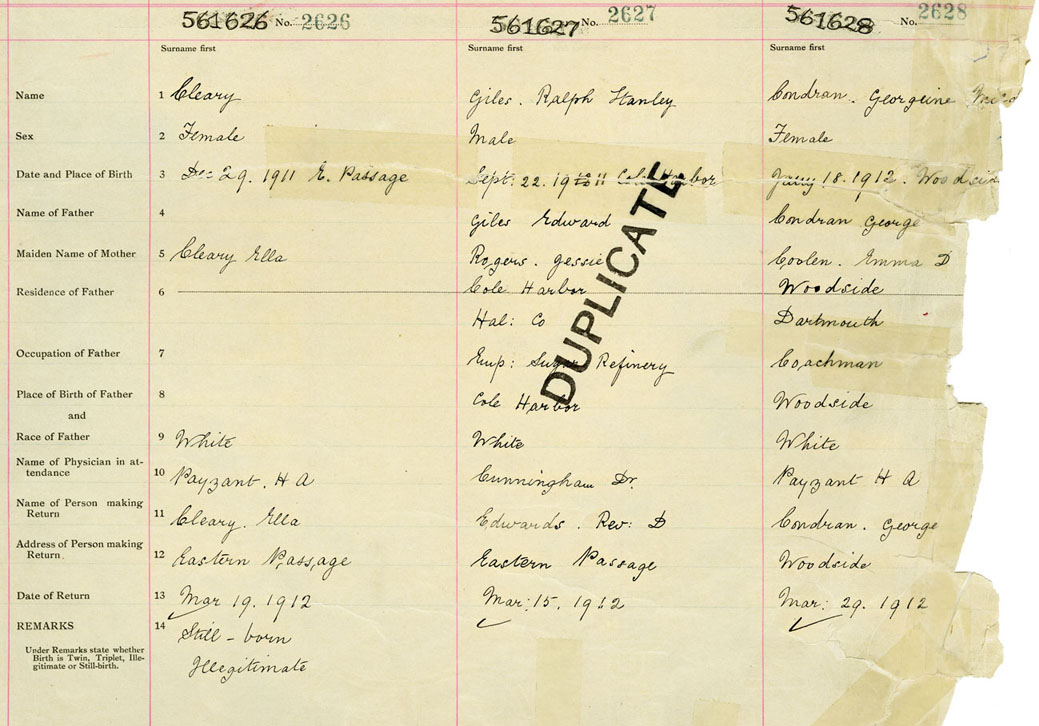 561626 No. 2626 561627 No. 2627 561628 No. 2628
Surname first Surname first Surname first
Name 1 Cleary Giles. Ralph Stanley Condran. Georgeine
Sex 2 Female Male Female
Date and Place of Birth 3 Dec 29. 1911 E. Passage Sept: 22. 1912 11 Cole Harbor 18. 1912. Woodside
Name of Father 4 Giles Edward Condran George
Maiden Name of Mother 5 Cleary Ella Rogers. Jessie Coolen. Emma D
Residence of Father 6 Cole Harbor Woodside
Hal: Co Dartmouth
DUPLICATE
Occupation of Father 7 Emp: Sugar Refinery Coachman
Place of Birth of Father 8 Cole Harbor Woodside
and
Race of Father 9 White White White
Name of Physician in at-
tendance 10 Payzant. H A Cunningham Dr. Payzant H A
Name of Person making
Return 11 Cleary. Ella Edwards. Rev: D Condran. George
Address of Person making
Return. 12 Eastern Passage Eastern Passage Woodside
Date of Return 13 Mar 19. 1912 Mar: 15. 1912 Mar: 29. 1912
REMARKS 14 Still-born
Under Remarks state whether
Birth is Twin, Triplet, Ille-
gitimate or Still-birth.
Illegitimate